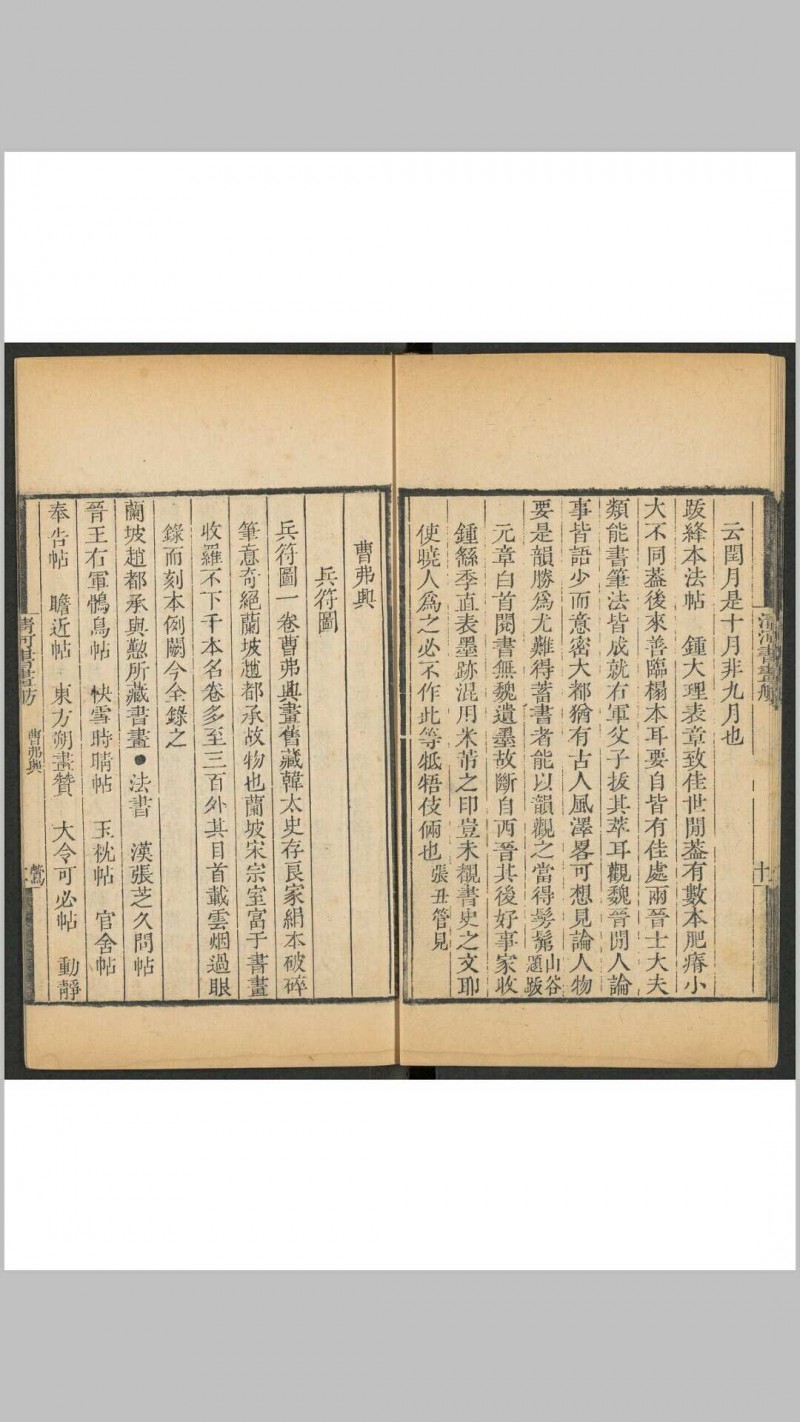 清河書畫舫
云閏月是十月非九月也
跋絳本法帖　鍾大理表章致佳世閒葢有數本肥瘠小
大不同葢後來善臨榻本耳要自皆有佳處兩晉士大夫
類能書筆法皆成就右軍父子拔其萃耳觀魏晉閒人論
事皆語少而意密大都猶有古人風澤畧可想見論人物
要是韻勝爲尤難得蓄書者能以韻觀之當得髣髴山谷題跋
元章白首閱書無魏遺墨故斷自西晉其後好事家收
鍾繇季直表墨跡混用米芾之印豈未覩書史之文耶
使曉人爲之必不作此等牴牾伎倆也張丑管見
曹弗興
兵符圖
兵符圖一卷曹弗興畫舊藏韓太史存良家絹本破碎
筆意奇絕蘭坡趙都承故物也蘭坡宋宗室富于書畫
收羅不下千本名卷多至三百外其目首載雲烟過眼
錄而刻本例闕今全錄之
蘭坡趙都承與懃所藏書畫●法書　漢張芝久問帖
晉王右軍鶻鳥帖　快雪時晴帖　玉枕帖　官舍帖
奉告帖　瞻近帖　東方朔畫贊　大令可必帖　動靜
清河書畫舫
曹弗興
鶯